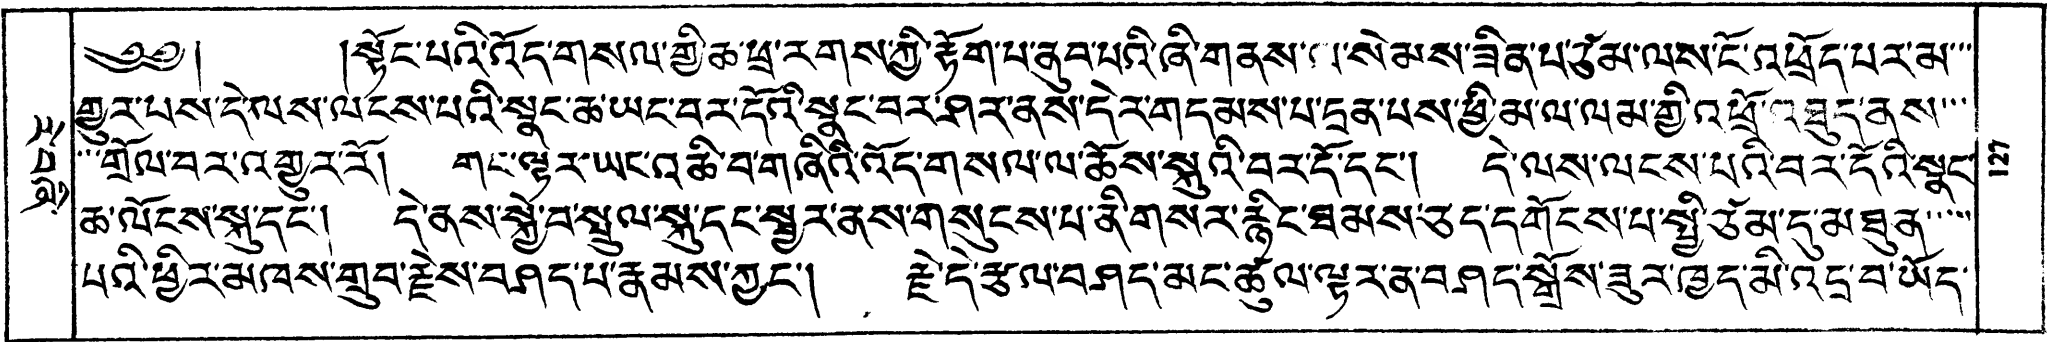 ༄༅། །སྟོང་པའི་འོད་གསལ་གྱི་ཆ་ཕྲ་རགས་ཀྱི་རྟོག་པ་ནུབ་པའི་ཞི་གནས་ལ་སེམས་ཟིན་པ་ཙམ་ལས་ངོ་འཕྲོད་པར་མ་
གྱུར་པས་དེ་ལས་ལངས་པའི་སྣང་ཆ་ཡང་བར་དོའི་སྣང་བར་ཤར་ནས་དེར་གདམས་པ་དྲན་པས་ཕྱི་མ་ལ་ལམ་གྱི་འཕྲོ་འཐུད་ནས་
གྲོལ་བར་འགྱུར་རོ། གང་ལྟར་ཡང་འཆི་བ་གཞིའི་འོད་གསལ་ལ་ཆོས་སྐུའི་བར་དོ་དང་། དེ་ལས་ལངས་པའི་བར་དོའི་སྣང་
ཆ་ལོངས་སྐུ་དང་། དེ་ནས་སྐྱེ་བ་སྤྲུལ་སྐུ་དང་སྦྱར་ནས་གསུངས་པ་ནི་གསར་རྙིང་ཐམས་ཅད་དགོངས་པ་སྤྱི་ཙམ་དུ་མཐུན་
པའི་ཕྱིར་མཁས་གྲུབ་རྗེས་བཤད་པ་རྣམས་ཀྱང་། རྗེ་དེ་རྩལ་བཤད་མང་ཚུལ་ལྟར་ན་བཤད་སྒྲོས་ཟུར་ཁྱད་མི་འདྲ་བ་ཡོད་